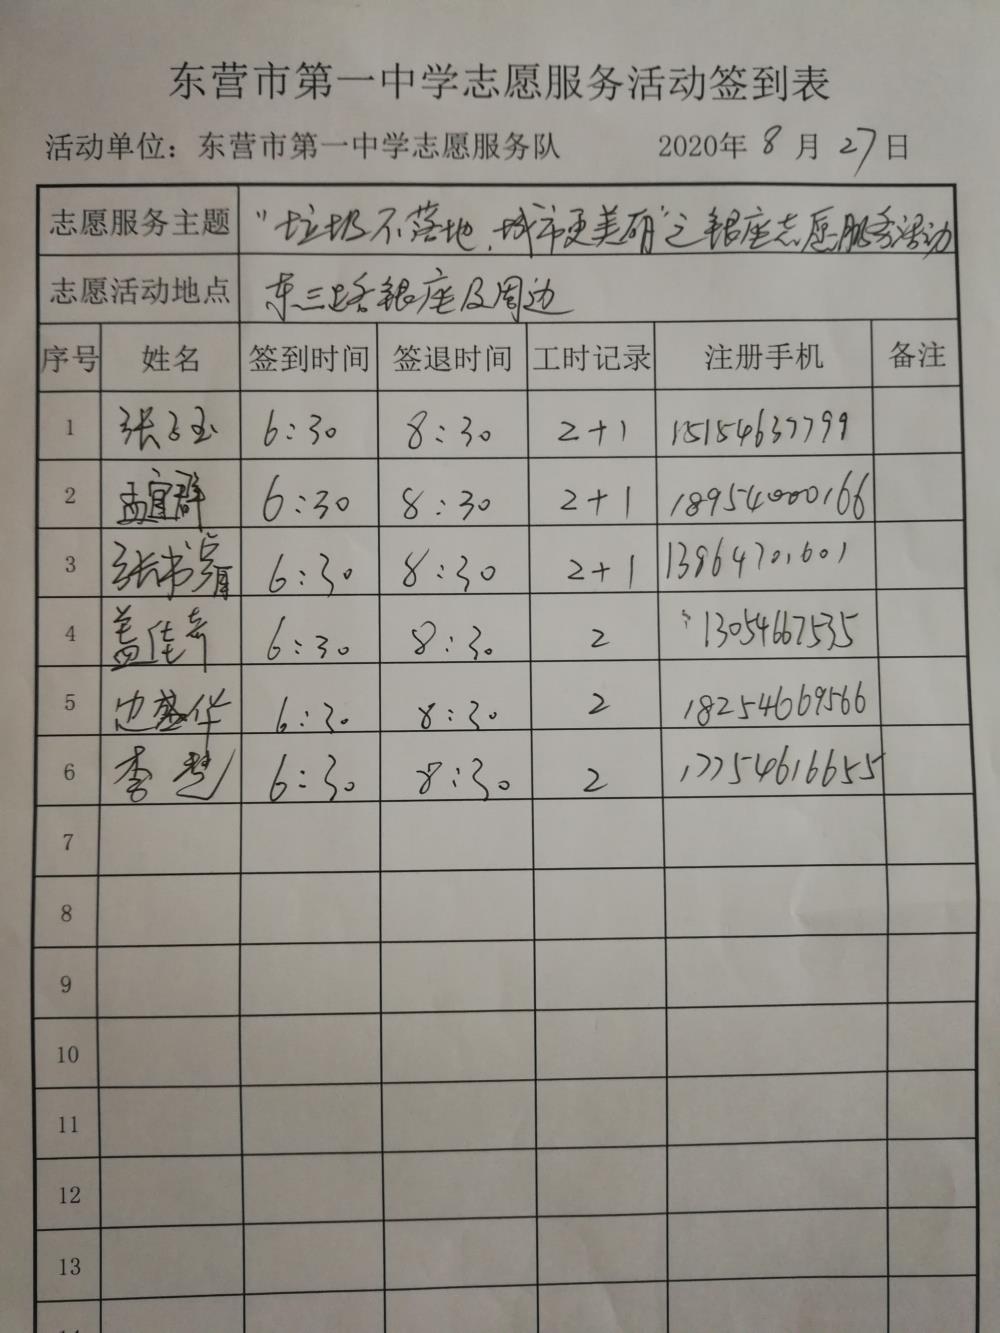 东营市第一中学志愿服务活动签到表
活动单位：东营市第一中学志愿服务队 2020年 8 月 27 日
志愿服务主题 "垃圾不落地，城市更美丽"之银座志愿服务活动
志愿活动地点 东三路银座及周边
序号 姓名 签到时间 签退时间 工时记录 注册手机 备注
1 张子玉 6:30 8:30 2+1 15154637799
2 孟宜群 6:30 8:30 2+1 18954000166
3 张书 6:30 8:30 2+1 13864701601
4 盖佳奇 6:30 8:30 2 13054667535
5 边盛华 6:30 8:30 2 18254669566
6 李楚 6:30 8:30 2 17754616655
7
8
9
10
11
12
13